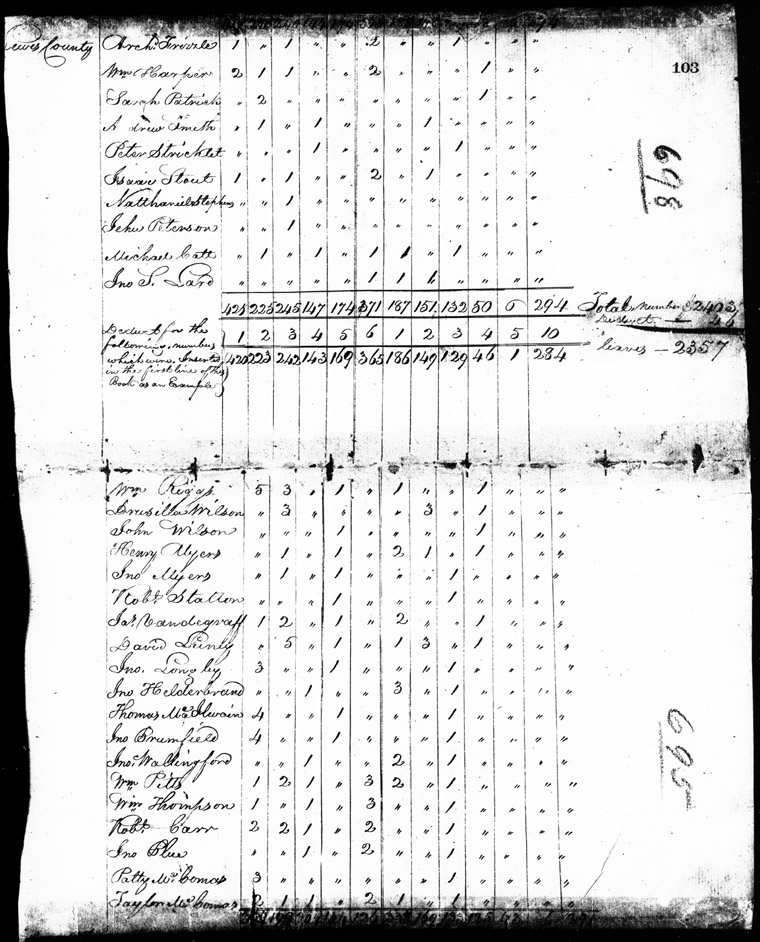 Lewis County Archd. Tivizle 1 " 1 " " 2 " " 1 " " "
Wm Harper 2 1 1 " " 2 " " " 1 " "
103
Sarah Patrick " 2 " " " " " " " 1 " "
A drew Smith " 1 " 1 " " " 1 " " " "
Peter Stricklet " " " 1 " " " " 1 " " "
698
Isaac Stout 1 " 1 " " 2 " 1 " " " "
Natthaniel Stephens " " 1 " " " " " " " " "
Jehu Peterson " " 1 " " " " " " " " "
Michael Catt " 1 " 1 " 1 1 " 1 " " "
Jno S. Lard " " " " " 1 1 1 " " " "
421 225 245 147 174 371 187 151 132 50 6 294 Total Number 2403
Deduct 46
Deduct for the 1 2 3 4 5 6 1 2 3 4 5 10
following numbers leaves - 2357
which were Inserted 420 223 242 143 169 365 186 149 129 46 1 284
in the first line of this
Book as an Example
Wm Riggs 5 3 " 1 " 1 " " 1 " " "
Drusilla Wilson " 3 " " " " " 3 " 1 " " "
John Wilson " " " 1 " " " " 1 " " "
Henry Myers " 1 " 1 " 2 1 " 1 " " "
Jno Myers " 1 " 1 " " " 1 " " " "
Robt. Stalton " " " 1 " " " 1 " " " "
Jas. Vandegraff 1 2 " 1 " 2 " " 1 " " "
David " 5 " 1 " 1 3 " 1 " " "
Jno. Longley 3 " " 1 " " " " 1 " " "
Jno Helderbrand " " 1 " " 3 " 1 " " " "
Thomas McIlwain 4 " " 1 " " " 1 " " " "
695
Jno Brumfield 4 " " 1 " " " 1 " " " "
Jno. Wallingford " " 1 " " 2 " 1 " " " "
Wm Pitts 1 2 1 " 3 2 " 1 " " " "
Wm Thompson 1 " 1 " 3 " " 1 " " " "
Robt. Carr 2 2 1 " 2 " " 1 " " " "
Jno Blue " " 1 " 2 " " 1 " " " "
Patty McComas 3 " " " " " " 1 " " " "
Taylor McComas 2 1 1 " 2 1 " 1 " " " "